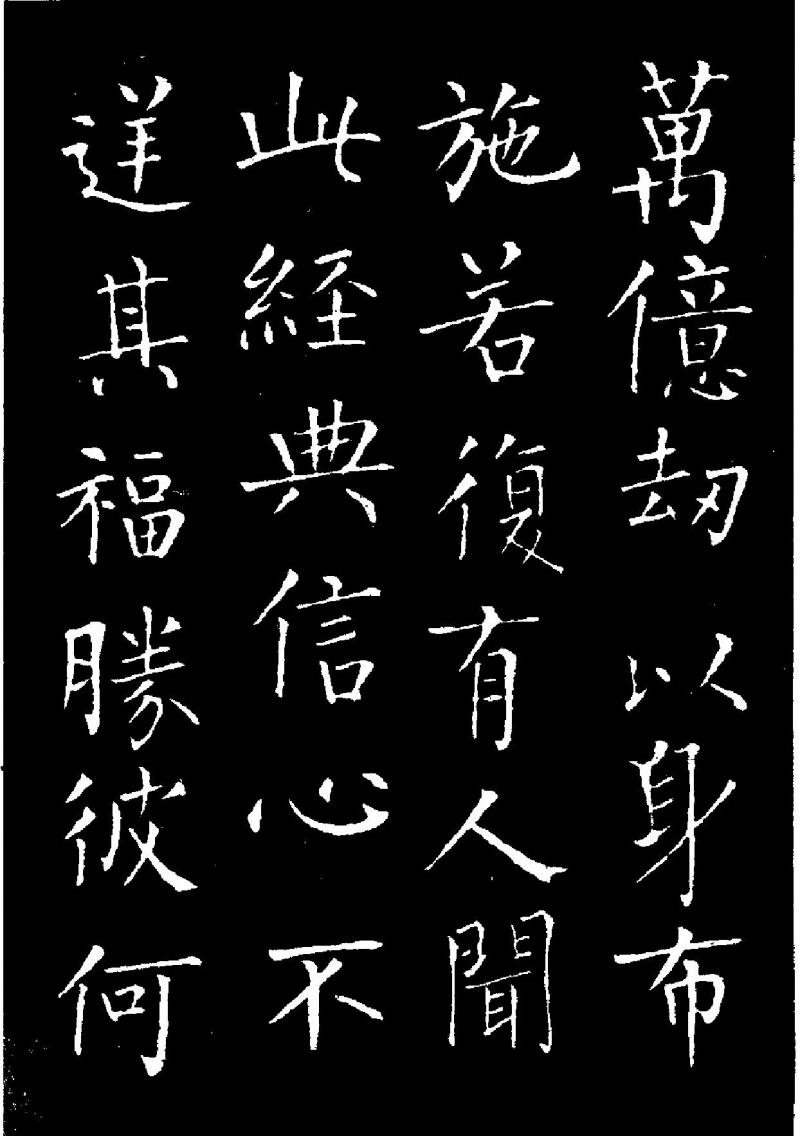 萬億劫以身布
施若復有人聞
此經典信心不
逆其福勝彼何